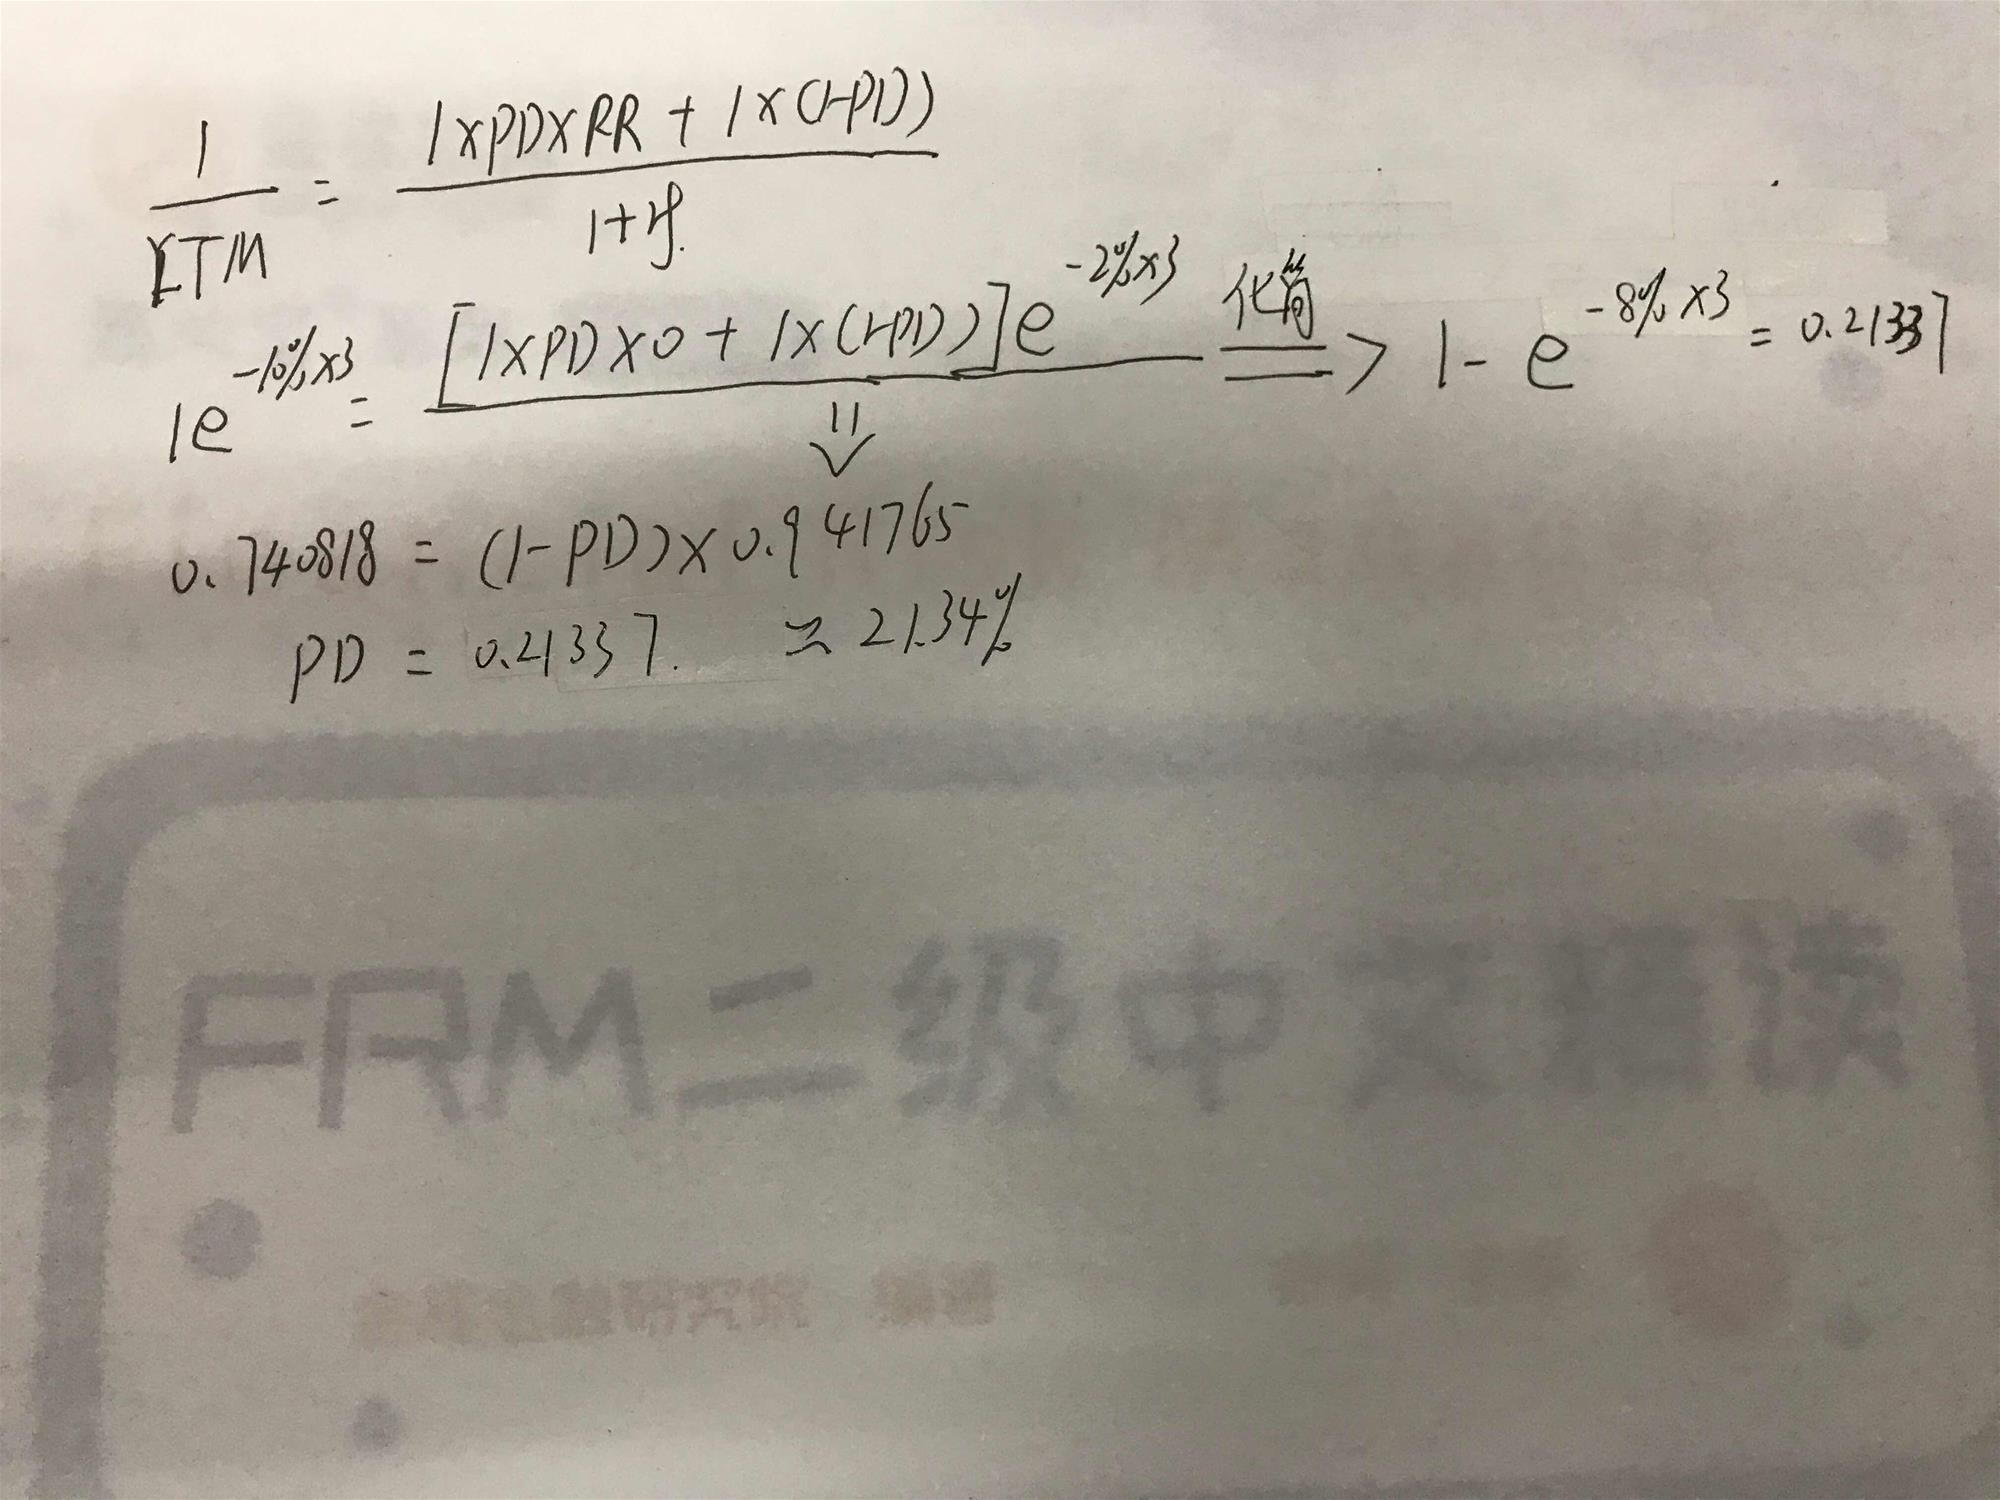 1/YTM = (1×PD×RR + 1×(1-PD))/(1+rf)
1e^{-10%×3} = [1×PD×0 + 1×(1-PD)]e^{-2%×3} 化简 => 1 - e^{-8%×3} = 0.21337
⇓
0.740818 = (1-PD)×0.941765
PD = 0.21337. ≈ 21.34%
FRM二级中文精读